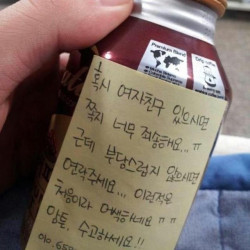 Premium Blend
혹시 여자친구 있으시면
쪽지 너무 죄송해요..ㅠ
근데 부담스럽지 않으시면
연락주세요... 이런적은
처음이라 어색하네요 ㅠㅠ
암튼, 수고하세요!!